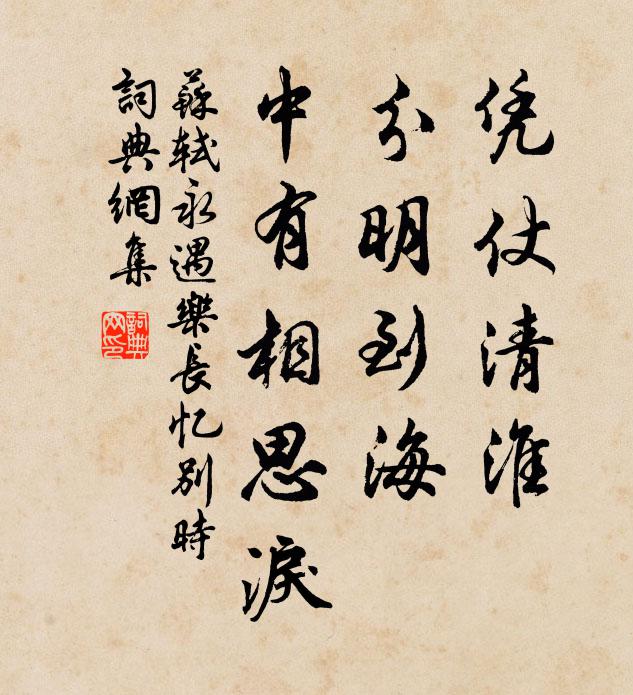 凭仗清淮
分明到海
中有相思淚
蘇軾永遇樂長忆别時
詞典網集
詞典
网印